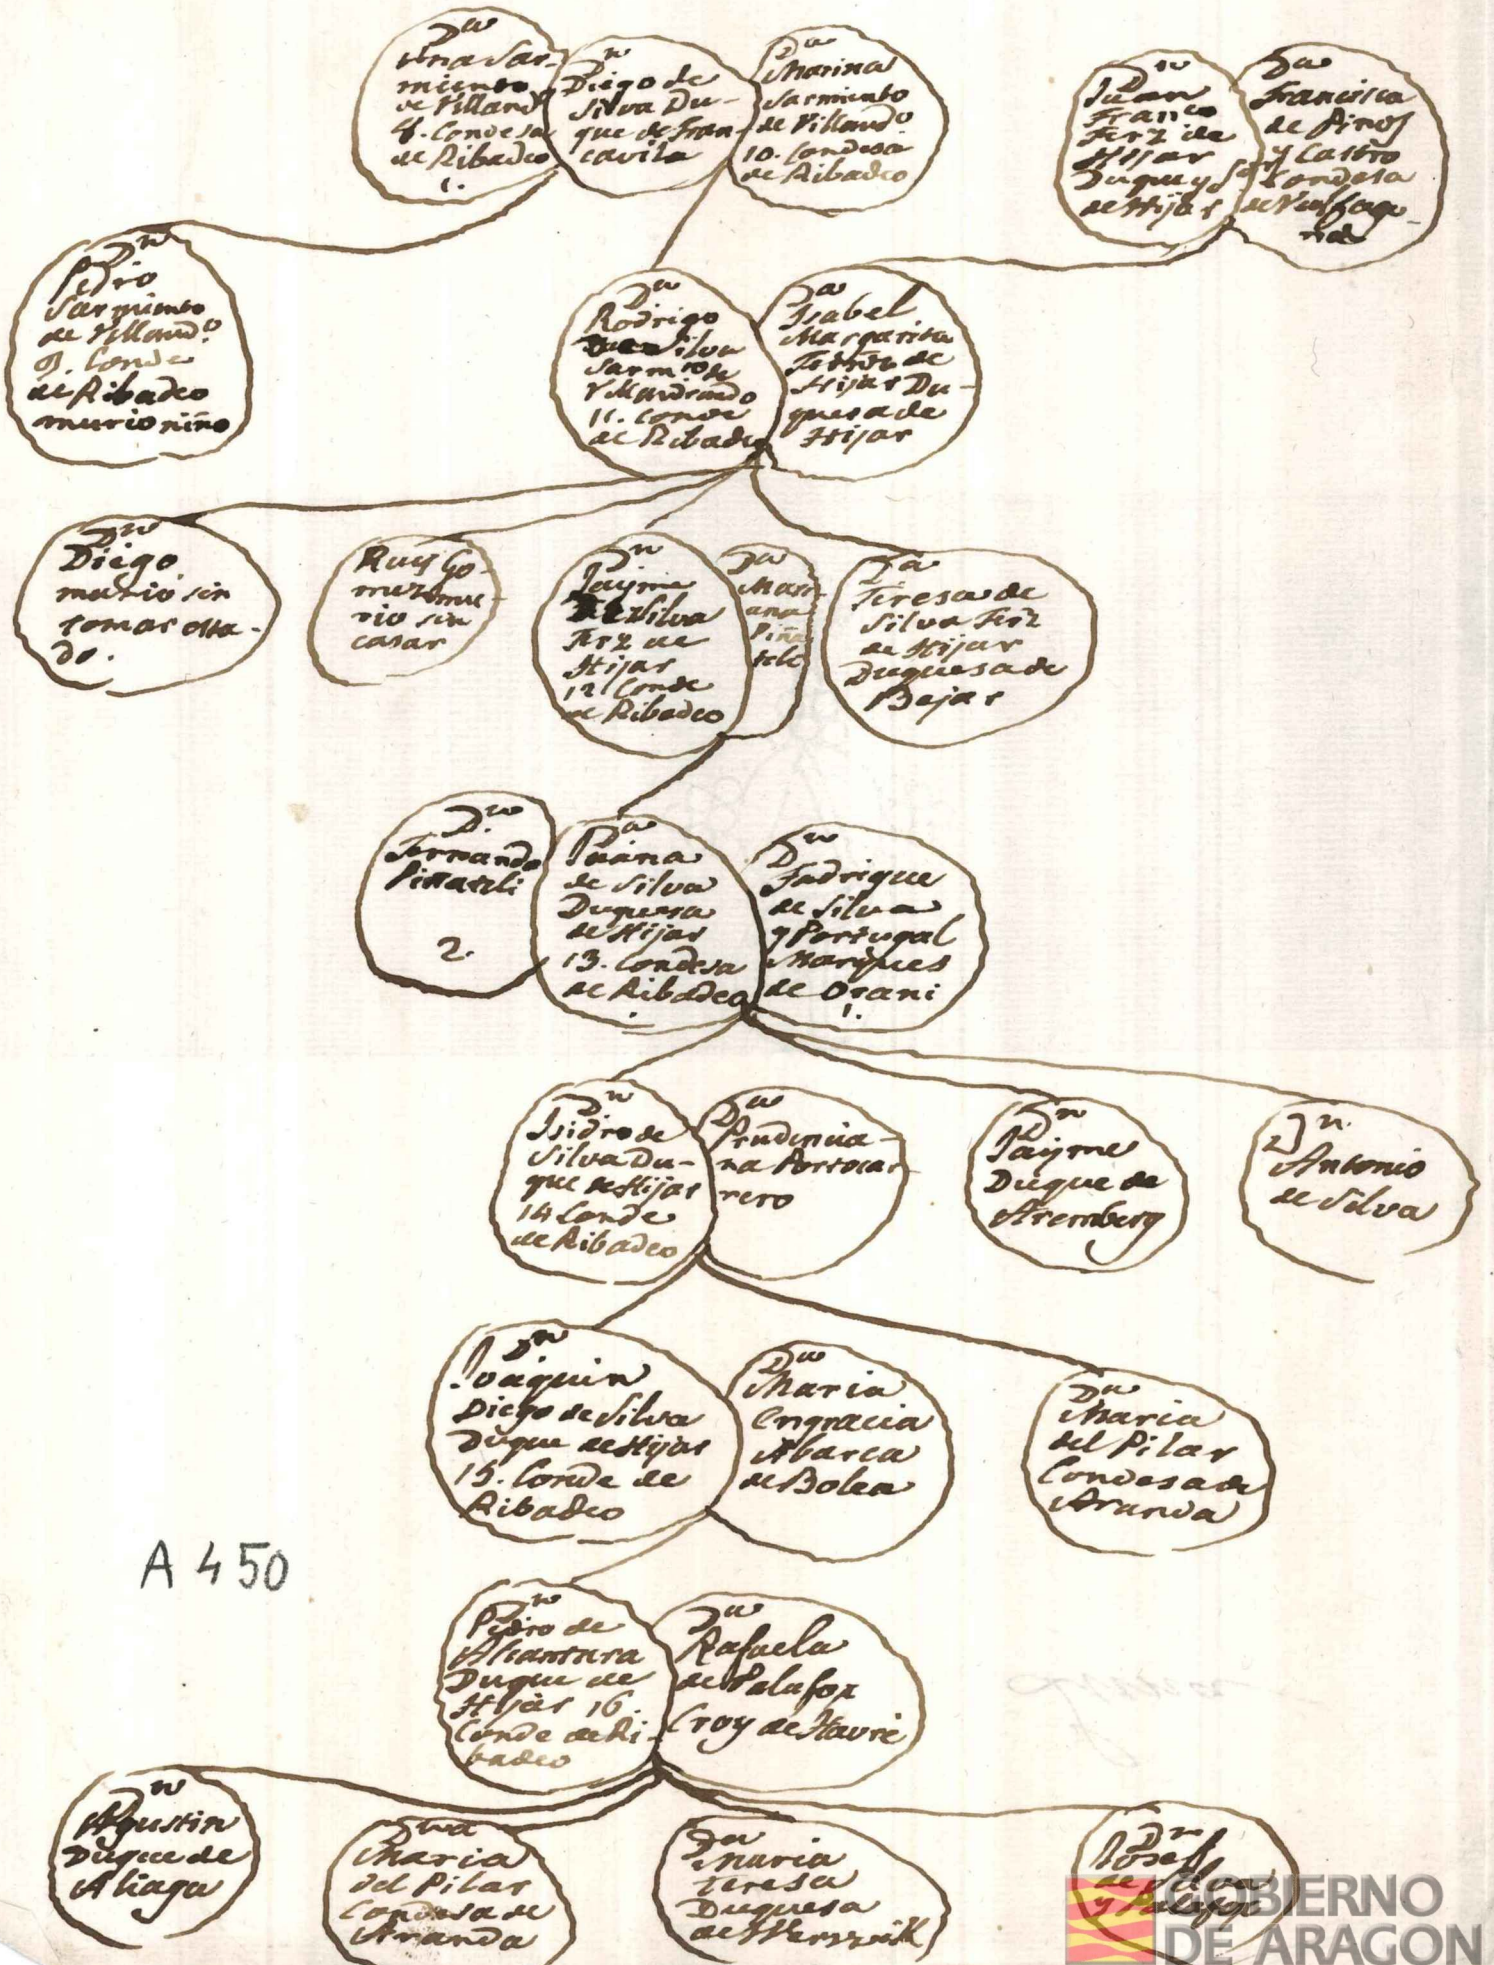 Da
Ana Sar-
miento
de Villando
Condesa
de Ribadeo
1.
Dn
Diego de
Silva Du-
que de Fran-
cavila
Da
Marina
Sarmiento
de Villando
10. Condesa
de Ribadeo
Dn
Juan
Franco
Ferz de
Hijar
Duque y Sor
de Hijar
Da
Francisca
de Pinos
y Castro
Condesa
de
Dn
Pedro
Sarmiento
de Villando
9. Conde
de Ribadeo
murio niño
Dn
Rodrigo
de Silva
Sarmto de
Villandrando
11. Conde
de Ribadeo
Da
Isabel
Margarita
de
Hijar Du-
quesa de
Hijar
Dn
Diego
murió sin
tomar esta-
do.
Ruy Go-
mez mu-
rio sin
casar
Dn
Jayme
de Silva
Ferz de
Hijar
12 Conde
de Ribadeo
Da
Mari-
ana
Piña
teli
Da
Teresa de
Silva Ferz
de Hijar
Duquesa de
Bejar
Dn
Fernando
Piñateli
2.
Da
Juana
de Silva
Duquesa
de Hijar
13. Condesa
de Ribadeo
Dn
Fadrique
de Silva
y Portugal
Marques
de Orani
1.
Dn
Isidro de
Silva Du-
que de Hijar
14 Conde
de Ribadeo
Da
Prudencia-
na Portocar-
rero
Dn
Jayme
Duque de
Aremberg
Dn
Antonio
de Silva
Dn
Joaquin
Diego de Silva
Duque de Hijar
15. Conde de
Ribadeo
Da
Maria
Engracia
Abarca
de Bolea
Da
Maria
del Pilar
Condesa de
Aranda
A 450
Dn
Pedro de
Alcantara
Duque de
Hijar 16.
Conde de Ri-
badeo
Da
Rafaela
de Palafox
Croy de Havré
Dn
Agustin
Duque de
Aliaga
Dna
Maria
del Pilar
Condesa de
Aranda
Da
Maria
Teresa
Duquesa
de
Dn
Josef
de Silva
y Palafox
GOBIERNO
DE ARAGON